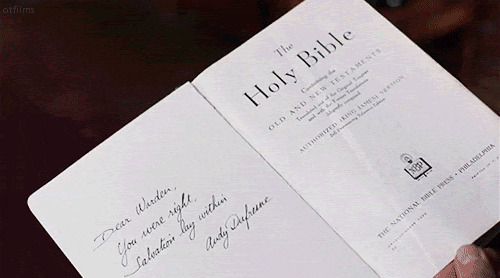 otfilms
Dear Warden,
You were right.
Salvation lay within
Andy Dufresne
The
Holy Bible
Containing the
OLD AND NEW TESTAMENTS
Translated out of the Original Tongues
and with the Former Translations
diligently compared
AUTHORIZED (KING JAMES) VERSION
Self-Pronouncing Reference Edition
THE NATIONAL BIBLE PRESS • PHILADELPHIA